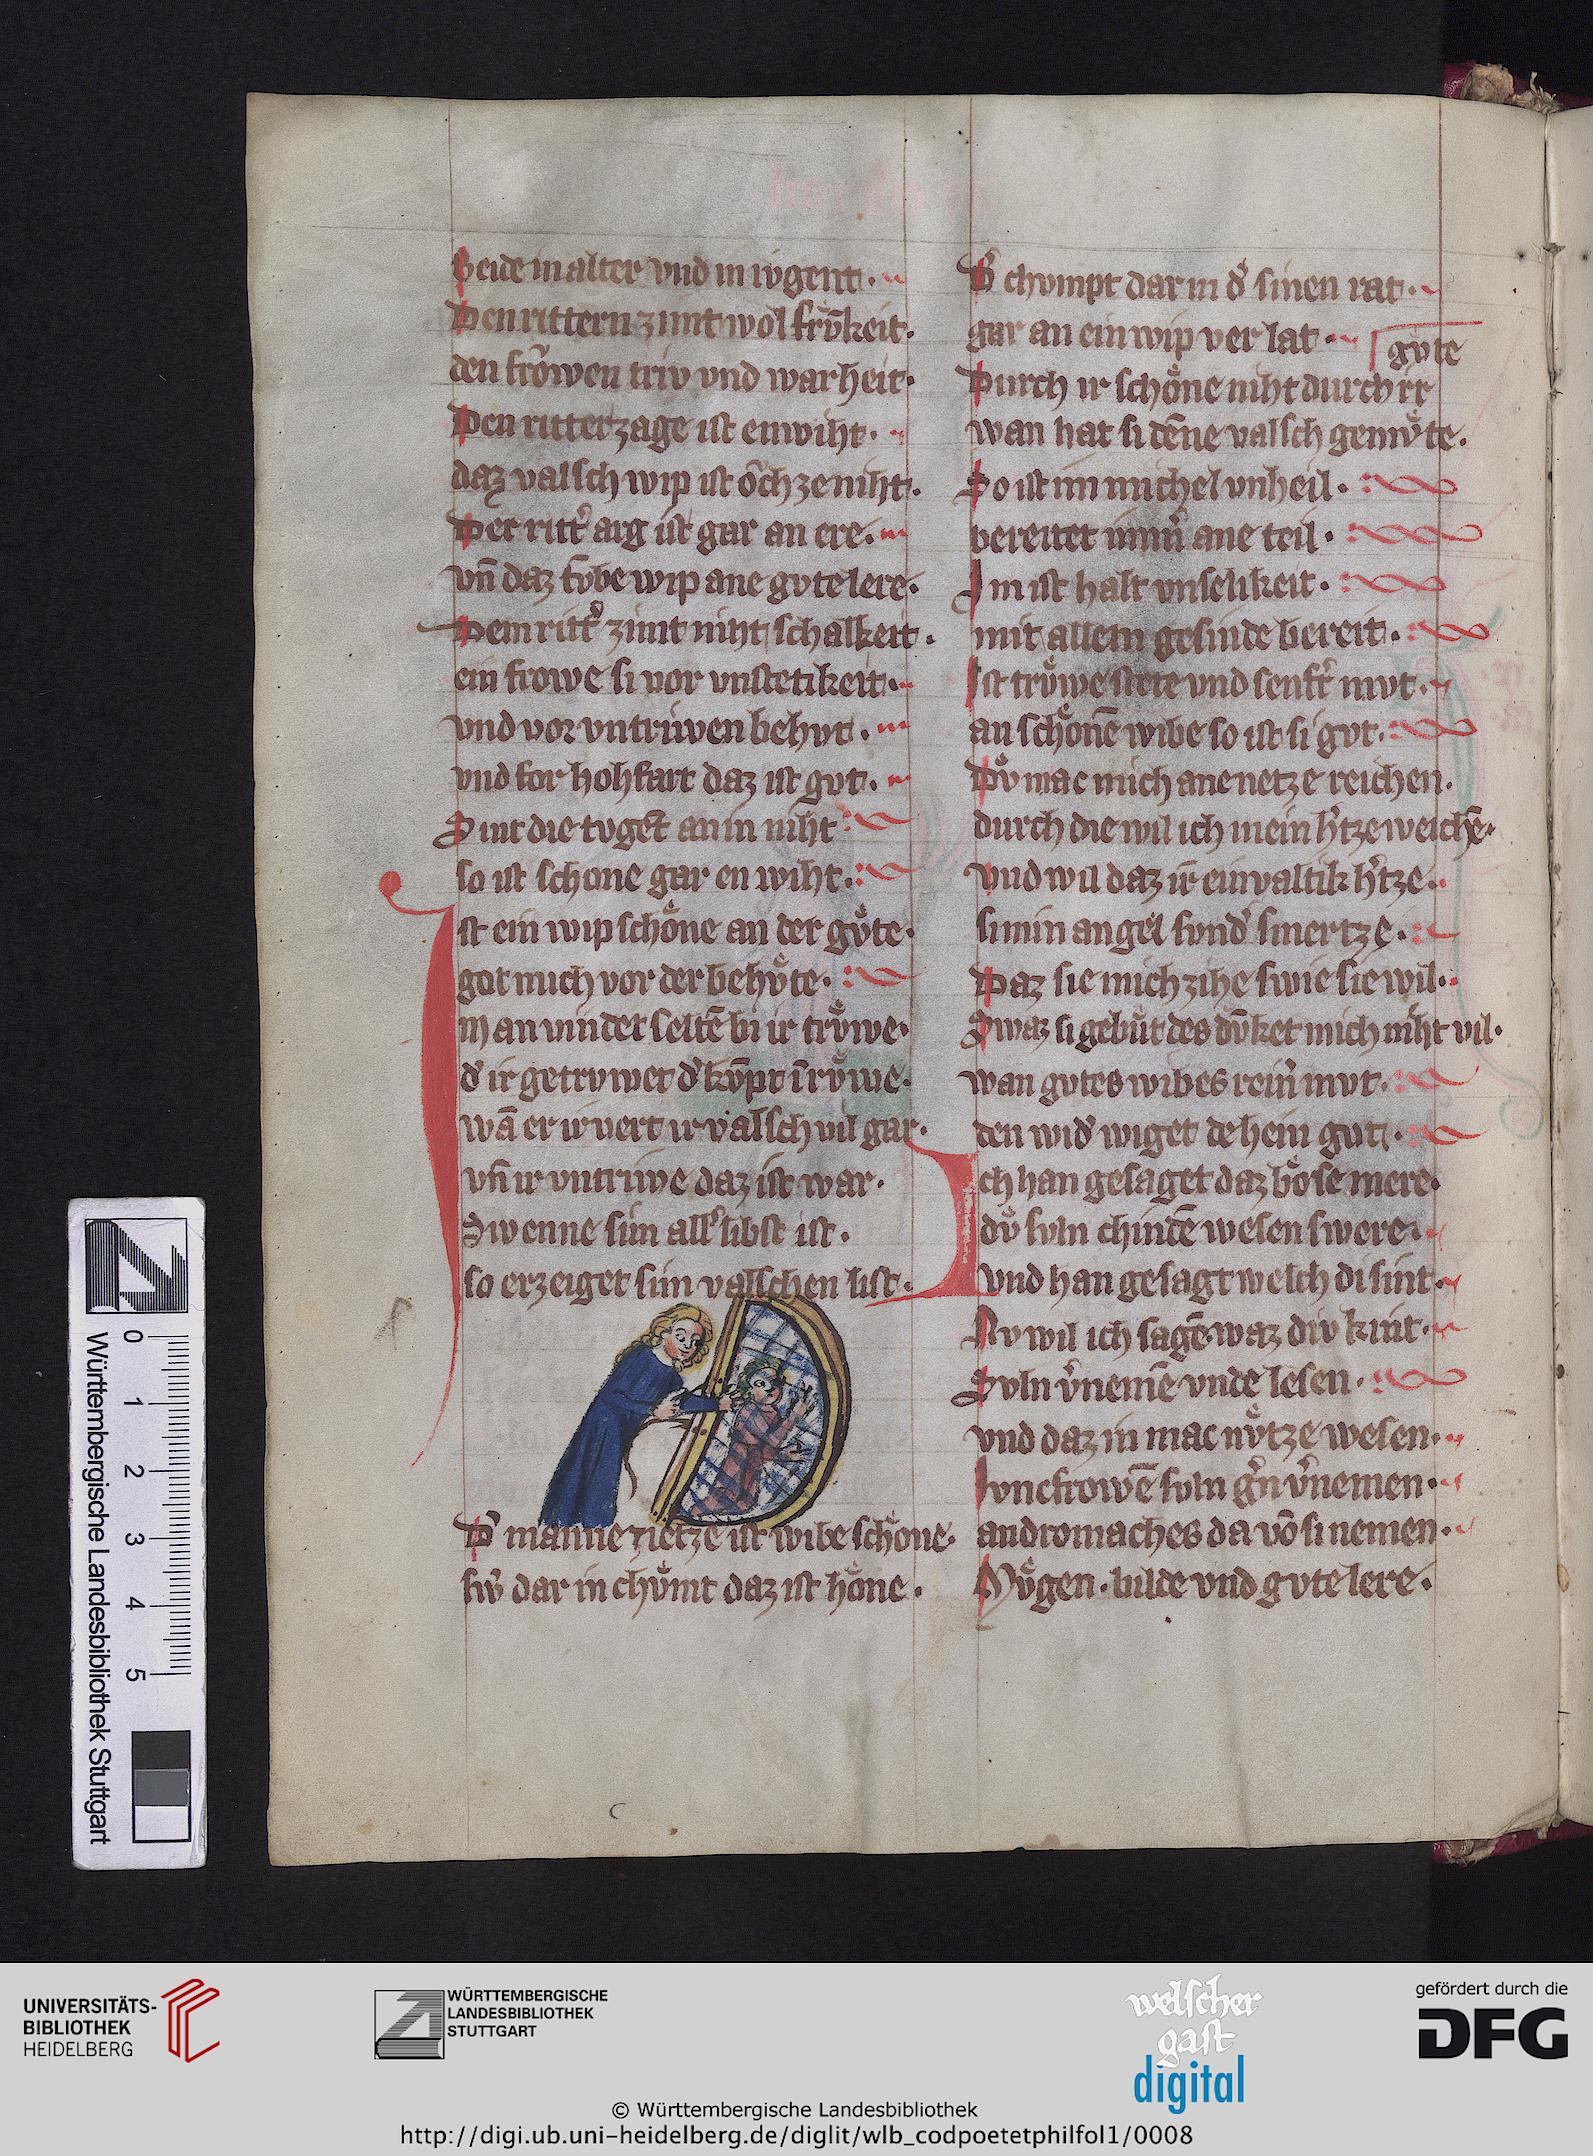 beide in alter vnd in ivgent.
Den rittern zimt wol frv̄keit.
den frowen triv vnd warheit.
Den ritter zage ist enwiht.
daz valsch wip ist och ze niht.
Der ritt' arg ist gar an ere.
vn̄ daz kvbe wip ane gvte lere.
Dem ritt' zimt niht schalkeit.
ein frowe si vor vnstetikeit.
vnd vor vntriwen behvt.
vnd for hohfart daz ist gvt.
Sint die tvget an in niht
so ist schone gar en wiht.
Ist ein wip schoͤne an der gvͤte.
got mich vor der behvͤte.
man vindet seltē bi ir trvͤwe.
d' ir getrvwet d' kv̄pt ī rvͤwe.
wā er irvert ir valsch vil gar.
vn̄ ir vntriwe daz ist war.
Swenne sim all' libst ist.
so erzeiget sim valschen list.
D' manne netze ist wibe schoͤne.
sw' dar in chvͤmt daz ist hoͤne.
D' chvmpt dar in d' sinen rat.
gar an ein wip ver lat.
gvte
Durch ir schoͤne niht durch ir
wan hat si dēne valsch gemvͤte.
So ist im michel vnheil.
bereitet imm' ane teil.
Im ist halt vnselikeit.
mit allem gesinde bereit.
Ist trvͤwe stete vnd senft' mvt.
an schoͤnē wibe so ist si gvt.
Dvͤ mac mich ane netze reichen.
durch die wil ich mein h'tze weichē.
vnd wil daz ir einvaltik h'tze.
si min angel svnd' smertze.
Daz sie mich zihe swie sie wil.
Swaz si gebvt des dvͤket mich niht vil.
wan gvtes wibes rein' mvt.
den wid' wiget dehein gvt.
Ich han gesaget daz boͤse mere.
dvͤ svln chindē wesen swere.
vnd han gesagt welch di sint.
Nv wil ich sagē waz div kint.
Svln v'nemē vnde lesen.
vnd daz in mac nvͤtze wesen.
Ivncfrowē svln g'n v'nemen.
andromaches da vō si nemen.
Mvͤgen. bilde vnd gvte lere.
Württembergische Landesbibliothek Stuttgart
0 1 2 3 4 5
UNIVERSITÄTS-
BIBLIOTHEK
HEIDELBERG
WÜRTTEMBERGISCHE
LANDESBIBLIOTHEK
STUTTGART
welscher
gast
digital
gefördert durch die
DFG
© Württembergische Landesbibliothek
http://digi.ub.uni-heidelberg.de/diglit/wlb_codpoetetphilfol1/0008